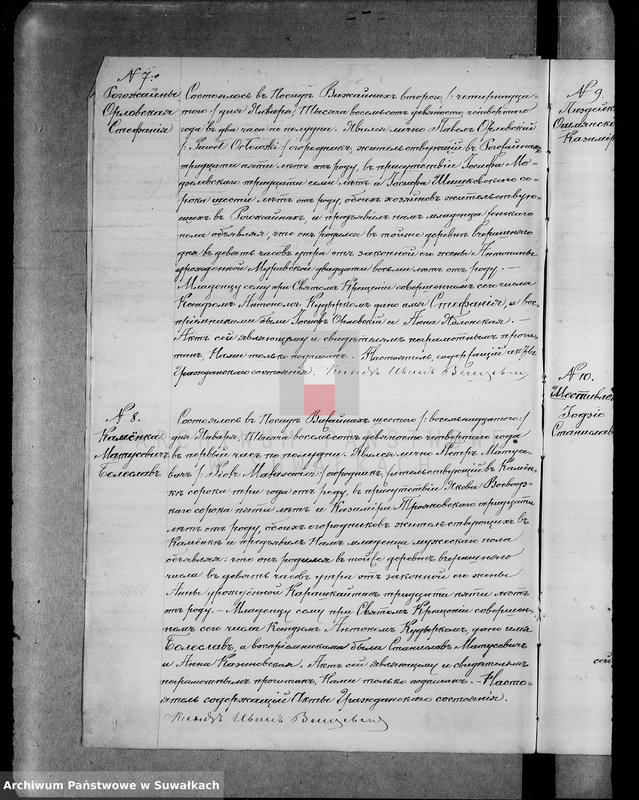 N 7.
Рогожайны
Орловская
Стефанія
Состоялось въ Посадѣ Вижайнахъ второго /: четырнадца-
того :/ дня Января, Тысяча восемьсотъ девяносто четвертаго
года въ два часа по полудни. Явился лично Павелъ Орловскій
/: Paweł Orłowski :/ огородникъ, жительствующій въ Рогожайнахъ
тридцати пяти лѣтъ отъ роду, въ присутствіи Іосифа
тридцати семи лѣтъ и Іосифа Шишковскаго со-
рока шести лѣтъ отъ роду, обоихъ хозяевъ жительствую-
щихъ въ Рогожайнахъ, и предъявилъ намъ младенца женскаго
пола объявляя, что онъ родился въ тойже деревнѣ вчерашняго
дня въ девять часовъ утра отъ законной его жены Антонины
урожденной двадцати восьми лѣтъ отъ роду. —
Младенцу сему при Святомъ Крещеніи совершенномъ сего числа
Ксендзомъ Антономъ Кудыркомъ дано имя Стефанія, а вос-
пріемниками были Іосифъ Орловскій и Анна Яблонская. —
Актъ сей являющему и свидѣтелямъ неграмотнымъ прочи-
танъ, Нами только подписанъ. — Настоятель, содержащій акты
гражданскаго состоянія. Ксендзъ Иванъ
N 8.
Камёнка
Матусевичъ
Болеславъ
Состоялось въ Посадѣ Вижайнахъ шестого /: восемнадцатого :/
дня Января, Тысяча восемьсотъ девяносто четвертого года
въ первый часъ по полудни. Явился лично Петръ Матусе-
вичъ /: Piotr :/ огородникъ, жительствующій въ Камён-
кѣ сорока три года отъ роду, въ присутствіи Якова
сорока пяти лѣтъ и Казиміра Трояновскаго тридцати
лѣтъ отъ роду, обоихъ огородниковъ жительствующихъ въ
Камёнкѣ и предъявилъ Намъ младенца мужескаго пола
объявляя: что онъ родился въ тойже деревнѣ вчерашняго
числа въ девять часовъ утра отъ законной его жены
Анны урождённой тридцати пяти лѣтъ
отъ роду. — Младенцу сему при Святомъ Крещеніи совершен-
номъ сего числа Ксендзомъ Антономъ Кудыркомъ, дано имя
Болеславъ, а воспріемниками были Станиславъ Матусевичъ
и Анна Казиновская. Актъ сей являющему и свидѣтелямъ
неграмотнымъ прочитанъ, Нами только подписанъ. — Насто-
ятель содержащій Акты Гражданскаго состоянія.
Ксендзъ Иванъ
N 9.
Казиміръ
N 10.
Станиславъ
Archiwum Państwowe w Suwałkach